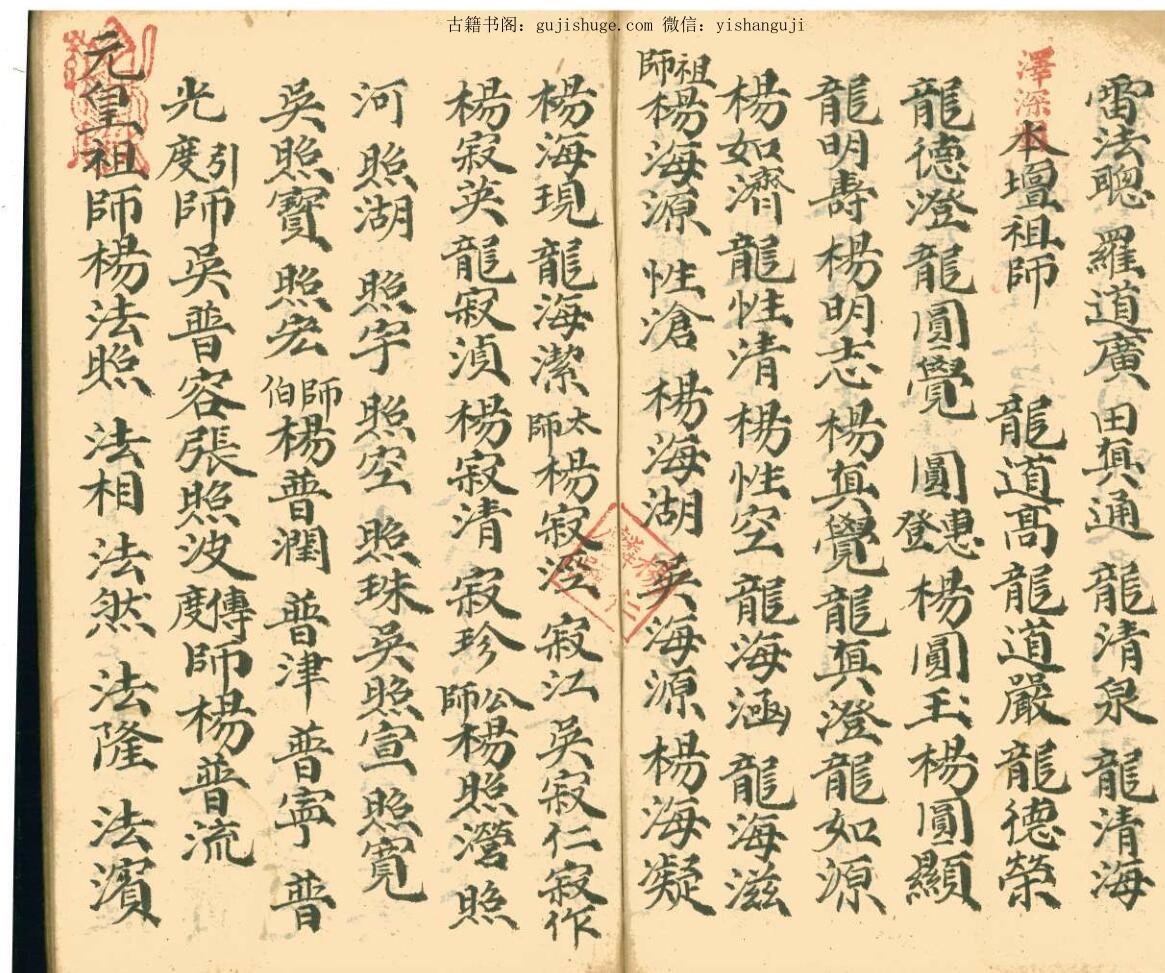 古籍书阁：gujishuge.com 微信：yishanguji
雷法聰 羅道廣 田真通 龍清泉 龍清海
澤深
本壇祖師 龍道高 龍道嚴 龍德榮
龍德澄 龍圓覺 圓惠登 楊圓玉 楊圓顯
龍明壽 楊明志 楊真覺 龍真澄 龍如源
楊如濟 龍性清 楊性空 龍海涵 龍海滋
祖師楊海源 性滄 楊海湖 吳海源 楊海凝
楊海現 龍海潔 太師楊寂 寂江 吳寂仁 寂作
楊寂英 龍寂湞 楊寂清 寂珍 公師楊照瀅 照
河 照湖 照宇 照空 照珠 吳照宣 照寬
吳照寶 照宏 師伯楊普潤 普津 普寧 普
光 引度師吳普容 張照波 傳度師楊普流
元皇祖師楊法照 法相 法然 法隆 法濱